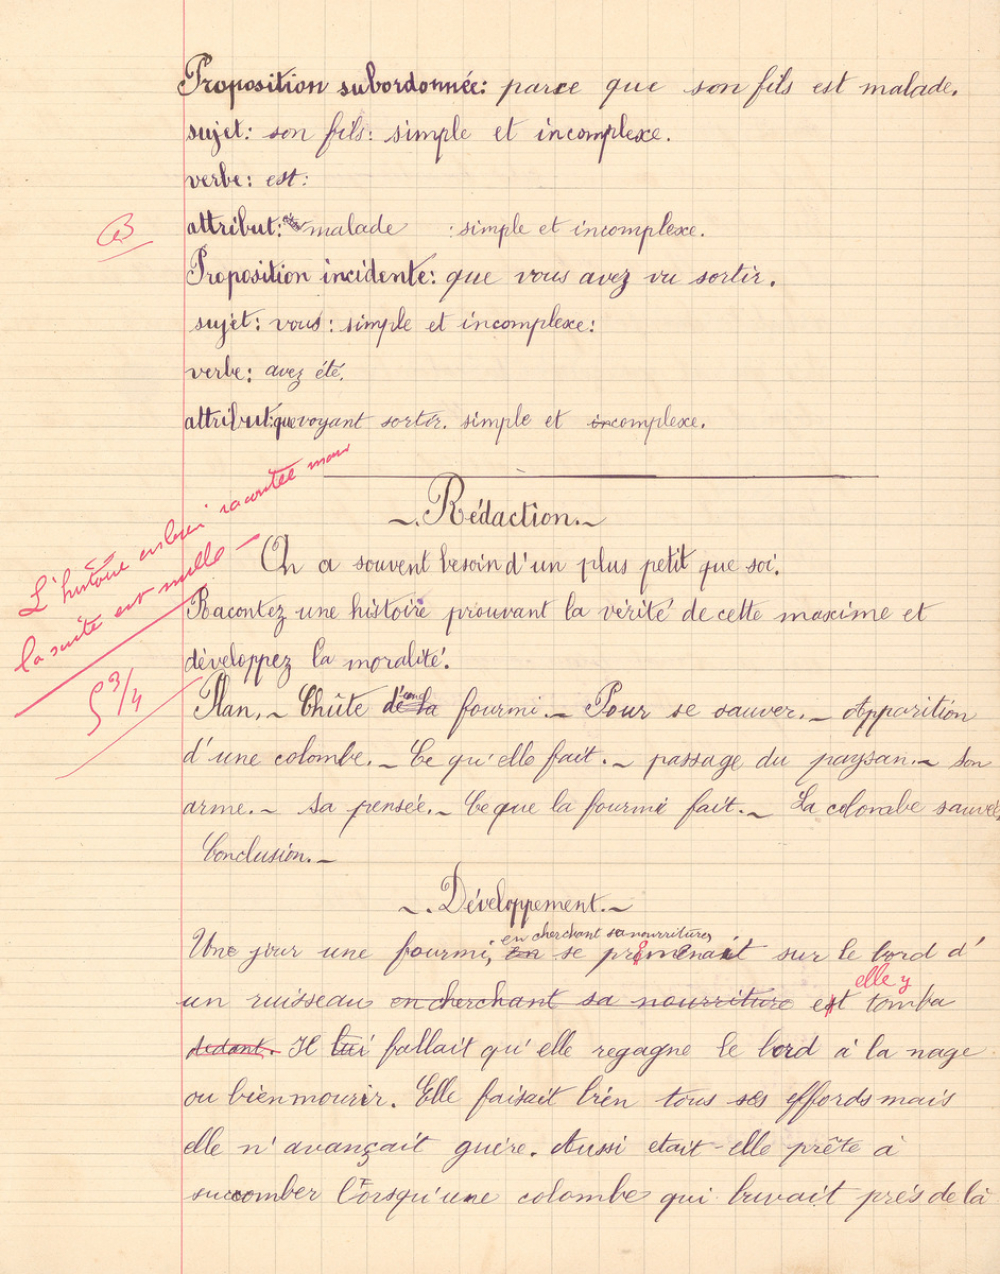 Proposition subordonnée: parce que son fils est malade.
sujet: son fils: simple et incomplexe.
verbe: est:
attribut: malade : simple et incomplexe.
Proposition incidente: que vous avez vu sortir.
sujet: vous: simple et incomplexe:
verbe: avez été.
attribut: que voyant sortir. simple et incomplexe.
L'histoire est bien racontée mais
la suite est nulle —
5 3/4
~. Rédaction. ~
On a souvent besoin d'un plus petit que soi.
Racontez une histoire prouvant la vérité de cette maxime et
développez la moralité.
Plan. ~ Chûte d'une fourmi. ~ Pour se sauver. ~ Apparition
d'une colombe. ~ Ce qu'elle fait. ~ passage du paysan. ~ Son
arme. ~ Sa pensée. ~ Ce que la fourmi fait. ~ La colombe sauvée,
Conclusion. ~
~. Développement. ~
en cherchant sa nourriture,
Une jour une fourmi, en se promenait sur le bord d'
elle y
un ruisseau en cherchant sa nourriture et tomba
dedant. Il lui fallait qu'elle regagne le bord à la nage
ou bien mourir. Elle faisait bien tous ses effords mais
elle n'avançait guère. Aussi etait-elle prête à
succomber lorsqu'une colombe qui buvait près de là